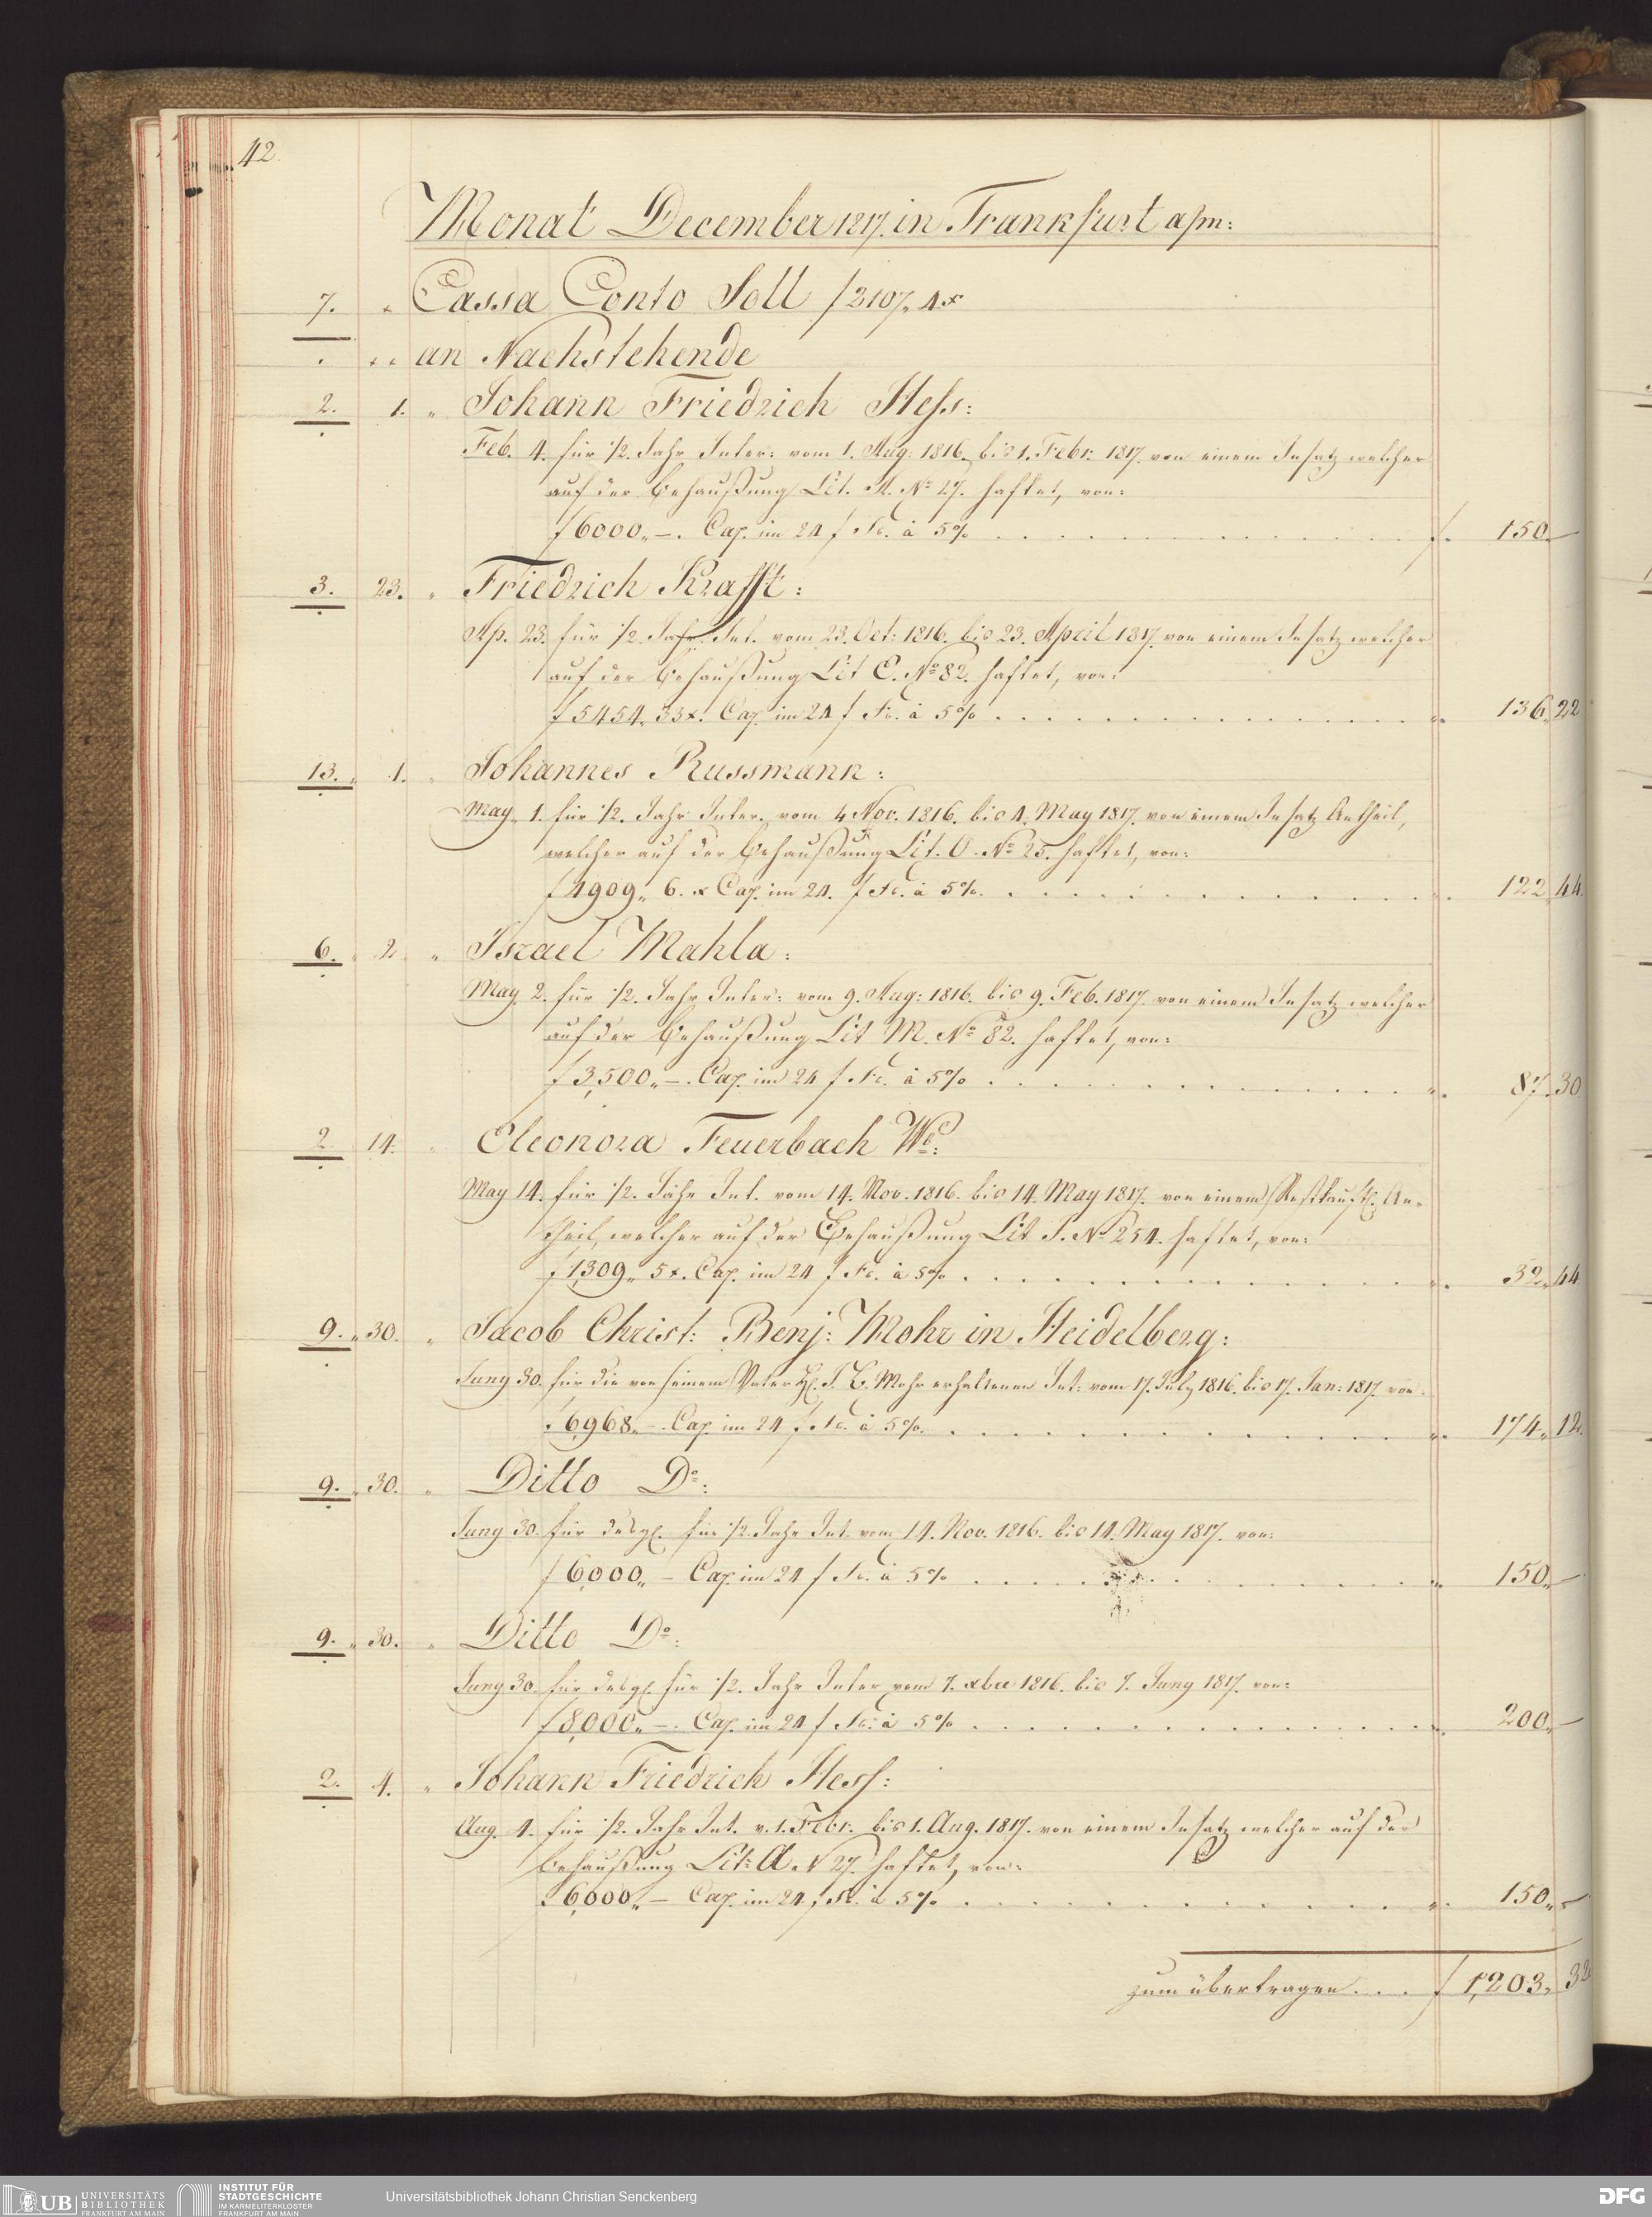 42.
Monat December 1817. in Frankfurt a/m:
7. „ Cassa Conto Soll f 2107„ 4 x
an Nachstehende
2. 1. „ Johann Friedrich Hess:
Feb. 4. für 1/2. Jahr Inter: vom 1. Aug: 1816. bis 1. Febr: 1817. von einem Insatz welcher
auf der Behaußung Lit. A. No 27. haftet, von:
f 6000„ –. Cap. im 24 f Fs. à 5% f. 150. –
3. 23. „ Friedrich Krafft:
Ap. 23. für 1/2. Jahr Int. vom 23. Oct: 1816. bis 23. April 1817. von einem Insatz welcher
auf der Behaußung Lit C. No 82. haftet, von:
f 5454„ 33 x. Cap. im 24 f Fs. à 5% „. 136„ 22
13. „ 1. „ Johannes Russmann:
May. 1. für 1/2. Jahr Inter. vom 4 Nov. 1816. bis 4. May 1817. von einem Insatz Antheil,
welcher auf der Behaußung Lit. O. No 25. haftet, von:
f 4909„ 6. x Cap. im 24. f Fs. à 5%. 122„ 44.
6. „ 2 „ Israel Mahla:
May 2. für 1/2. Jahr Inter: vom 9. Aug: 1816. bis 9. Feb. 1817. von einem Insatz welcher
auf der Behaußung Lit M. No 82. haftet, von:
f 3,500„ –. Cap. im 24 f Fs. à 5% „. 87. 30
2 14. „ Eleonora Feuerbach We:
May 14. für 1/2. Jahr Int. vom 14. Nov. 1816. bis 14. May 1817. von einem An-
theil, welcher auf der Behaußung Lit. J. No 254. haftet, von:
f 1,309„ 5 x. Cap. im 24 f Fs. à 5% „. 32„ 44
9. „ 30. „ Jacob Christ: Benj: Mohr in Heidelberg:
Juny 30. für die von seinem Vater H. J. C. Mohr erhaltenen Int: vom 17. July 1816. bis 17. Jan: 1817. von
f 6,968„ –. Cap. im 24 f Fs. à 5%. „. 174„ 12.
9. „ 30. „ Ditto Do:
Juny 30. für desgl. für 1/2. Jahr Int. vom 14. Nov. 1816. bis 14. May 1817. von:
f 6,000„ – Cap. im 24 f Fs. à 5% „ 150„ –
9. „ 30. „ Ditto Do:
Juny 30. für desgl. für 1/2. Jahr Inter vom 7. xber 1816. bis 7. Juny 1817. von:
f 8,000„ –. Cap. im 24 f Fs. à 5% „. 200„ –
2. 4. „ Johann Friedrich Hess:
Aug. 4. für 1/2. Jahr Int. v. 1. Febr. bis 1. Aug. 1817. von einem Insatz welcher auf der
Behaußung Lit: A. N 27. haftet, von:
f 6,000„ – Cap. im 24 f Fs. à 5% „. 150„ –
zum übertragen . . . f 1,203„ 32
UB UNIVERSITÄTS BIBLIOTHEK FRANKFURT AM MAIN
INSTITUT FÜR STADTGESCHICHTE IM KARMELITERKLOSTER FRANKFURT AM MAIN
Universitätsbibliothek Johann Christian Senckenberg
DFG